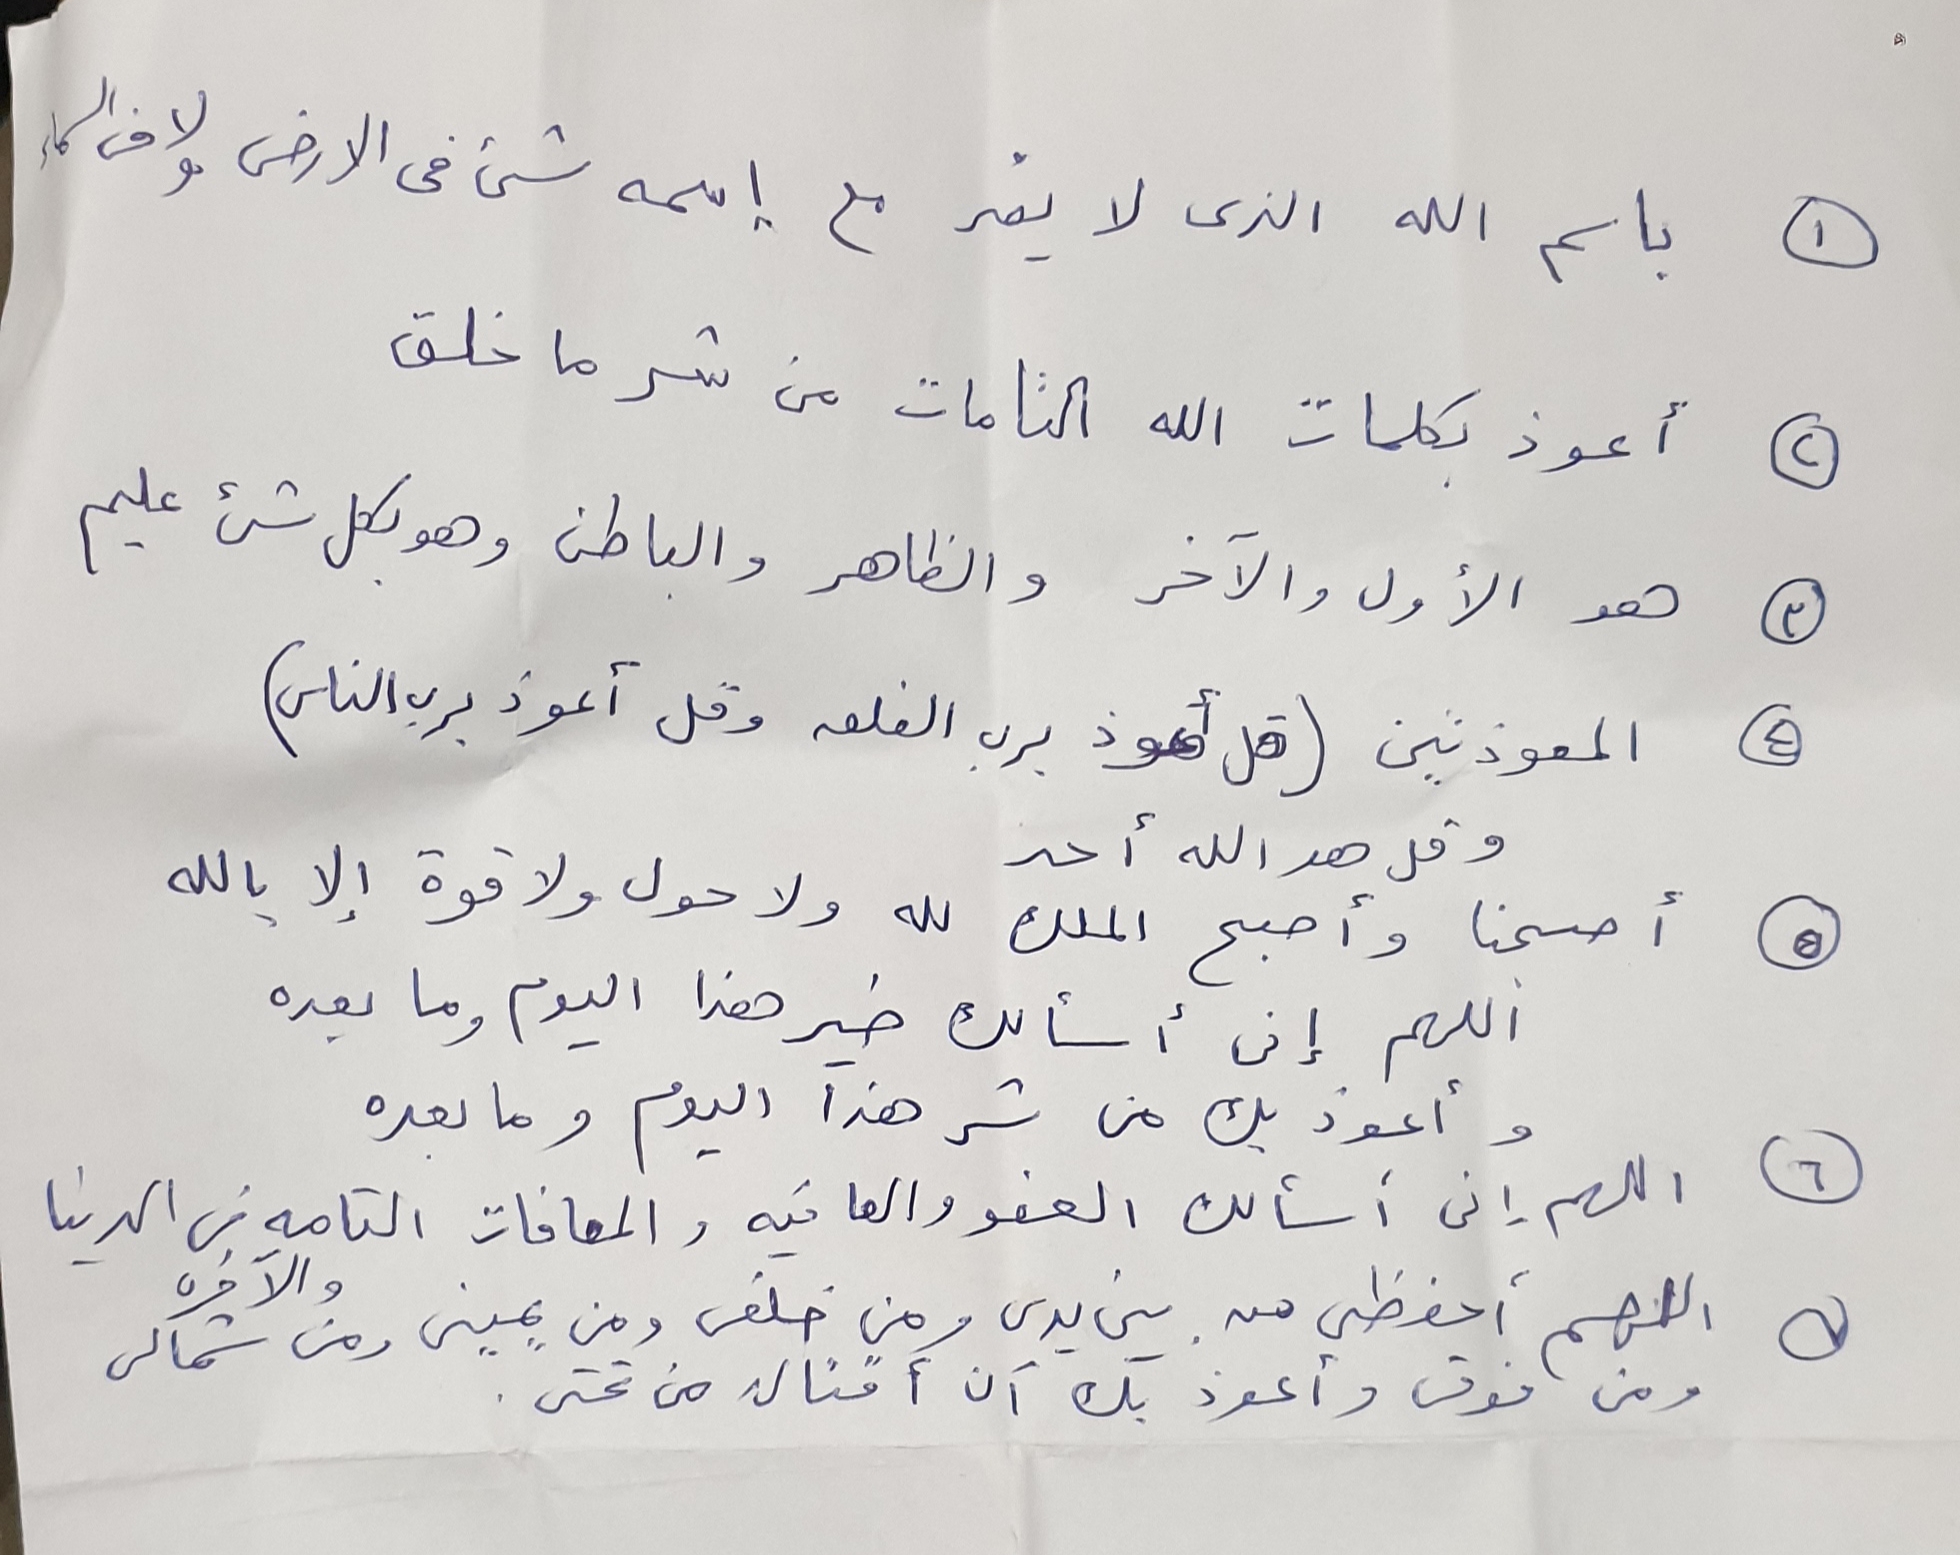 ١ باسم الله الذى لا يضر مع إسمه شئ فى الارض ولا فى السماء
٢ أعوذ بكلمات الله التامات من شر ما خلق
٣ هو الأول والآخر والظاهر والباطن وهو بكل شئ عليم
٤ المعوذتين (قل أعوذ برب الفلق وقل أعوذ برب الناس)
وقل هو الله أحد
٥ أصبحنا وأصبح الملك لله ولا حول ولا قوة إلا بالله
اللهم إنى أسألك خير هذا اليوم وما بعده
وأعوذ بك من شر هذا اليوم وما بعده
٦ اللهم إنى أسألك العفو والعافيه والمعافات التامه فى الدنيا
والآخره
٧ اللهم أحفظني من بين يدى ومن خلفى ومن يمينى ومن شمالى
ومن فوقى وأعوذ بك أن أغتال من تحتى .